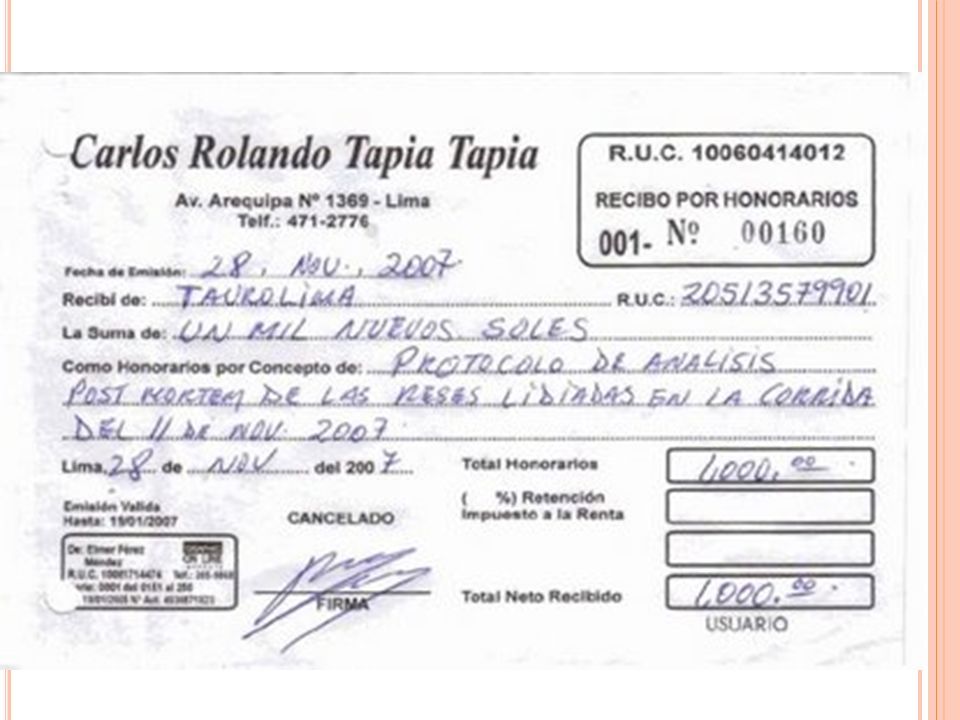 Carlos Rolando Tapia Tapia
Av. Arequipa Nº 1369 - Lima
Telf.: 471-2776
R.U.C. 10060414012
RECIBO POR HONORARIOS
001- Nº 00160
Fecha de Emisión: 28, NOV., 2007
Recibí de: TAUROLIMA R.U.C.: 20513579901
La Suma de: UN MIL NUEVOS SOLES
Como Honorarios por Concepto de: PROTOCOLO DE ANALISIS
POST MORTEM DE LAS RESES LIDIADAS EN LA CORRIDA
DEL 11 DE NOV. 2007
Lima, 28 de NOV del 2007
Total Honorarios 1,000.00
( %) Retención
Impuesto a la Renta
Emisión Valida
Hasta: 15/01/2007
CANCELADO
De: Elmer Pérez
Mendez
ON LINE
FIRMA
Total Neto Recibido 1,000.00
USUARIO